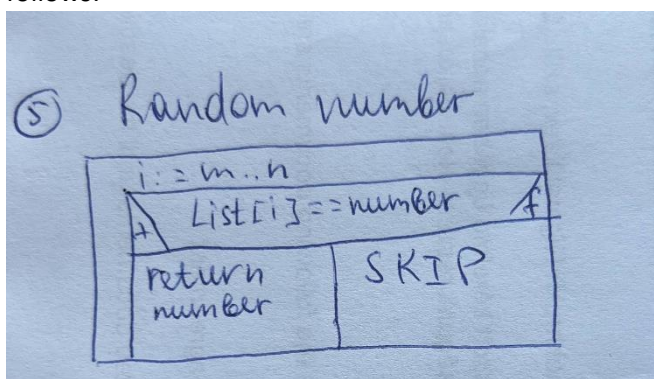 ⑤ Random number
i := m..n
+ List[i]==number f
return SKIP
number